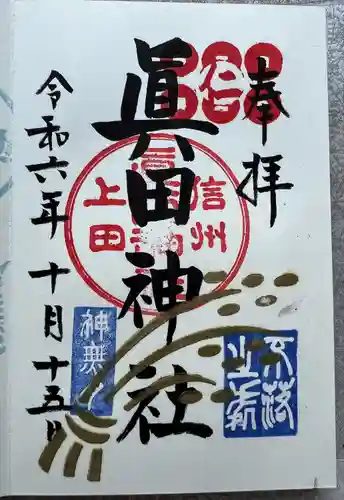 奉拝
眞田神社
信州
上田
不落
之砦
神無月
令和六年十月十五日